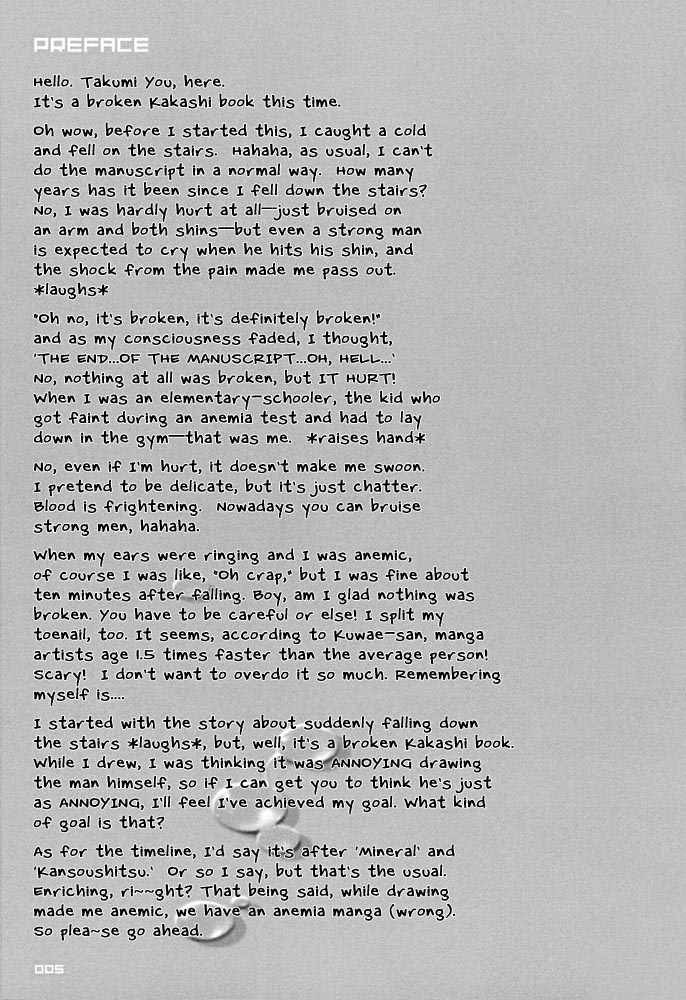 PREFACE
Hello. Takumi You, here.
It's a broken Kakashi book this time.
Oh wow, before I started this, I caught a cold
and fell on the stairs. Hahaha, as usual, I can't
do the manuscript in a normal way. How many
years has it been since I fell down the stairs?
No, I was hardly hurt at all—just bruised on
an arm and both shins—but even a strong man
is expected to cry when he hits his shin, and
the shock from the pain made me pass out.
*laughs*
"Oh no, it's broken, it's definitely broken!"
and as my consciousness faded, I thought,
'THE END...OF THE MANUSCRIPT...OH, HELL...'
No, nothing at all was broken, but IT HURT!
When I was an elementary-schooler, the kid who
got faint during an anemia test and had to lay
down in the gym—that was me. *raises hand*
No, even if I'm hurt, it doesn't make me swoon.
I pretend to be delicate, but it's just chatter.
Blood is frightening. Nowadays you can bruise
strong men, hahaha.
When my ears were ringing and I was anemic,
of course I was like, "Oh crap," but I was fine about
ten minutes after falling. Boy, am I glad nothing was
broken. You have to be careful or else! I split my
toenail, too. It seems, according to Kuwae-san, manga
artists age 1.5 times faster than the average person!
Scary! I don't want to overdo it so much. Remembering
myself is....
I started with the story about suddenly falling down
the stairs *laughs*, but, well, it's a broken Kakashi book.
While I drew, I was thinking it was ANNOYING drawing
the man himself, so if I can get you to think he's just
as ANNOYING, I'll feel I've achieved my goal. What kind
of goal is that?
As for the timeline, I'd say it's after 'Mineral' and
'Kansoushitsu.' Or so I say, but that's the usual.
Enriching, ri~~ght? That being said, while drawing
made me anemic, we have an anemia manga (wrong).
So plea~se go ahead.
005